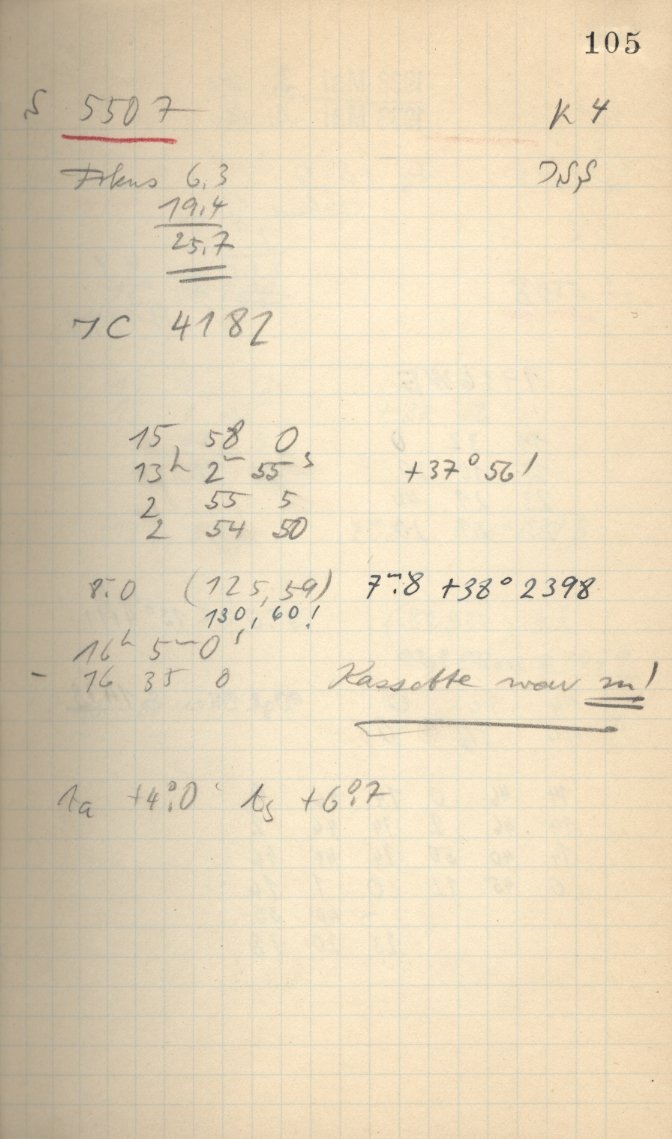 105
S 5507 K 4
Fokus 6,3
19,4
25,7
IC 4182
15 58 0
13h 2m 55s +37° 56'
2 55 5
2 54 50
8m.0 (125, 59) 7m.8 +38° 2398
130, 60!
16h 5m 0s
- 16 35 0 Kassette war zu!
ta +4°.0 ts +6°.7